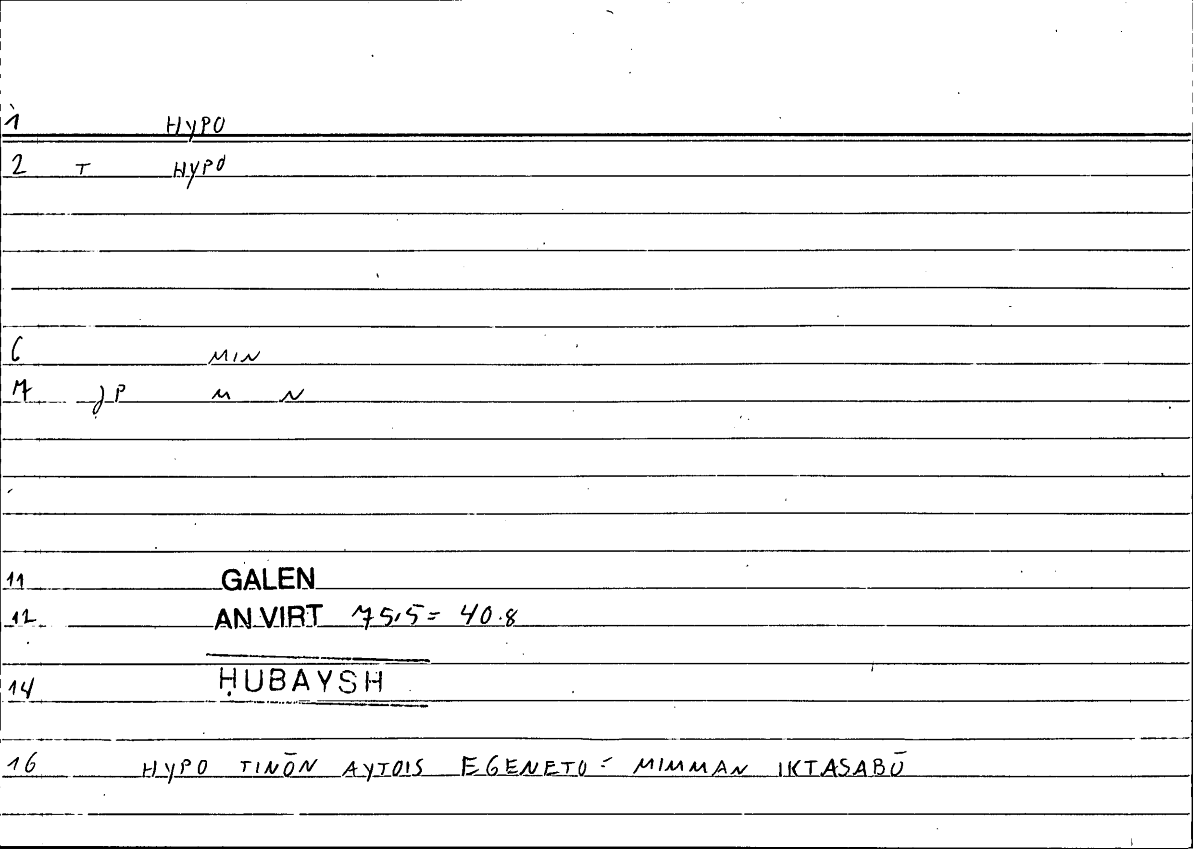 1 HYPO
2 T HYPO
6 MIN
7 JP M N
11 GALEN
12 AN.VIRT 75,5 = 40.8
14 ḤUBAYSH
16 HYPO TINŌN AYTOIS EGENETO = MIMMAN IKTASABŪ